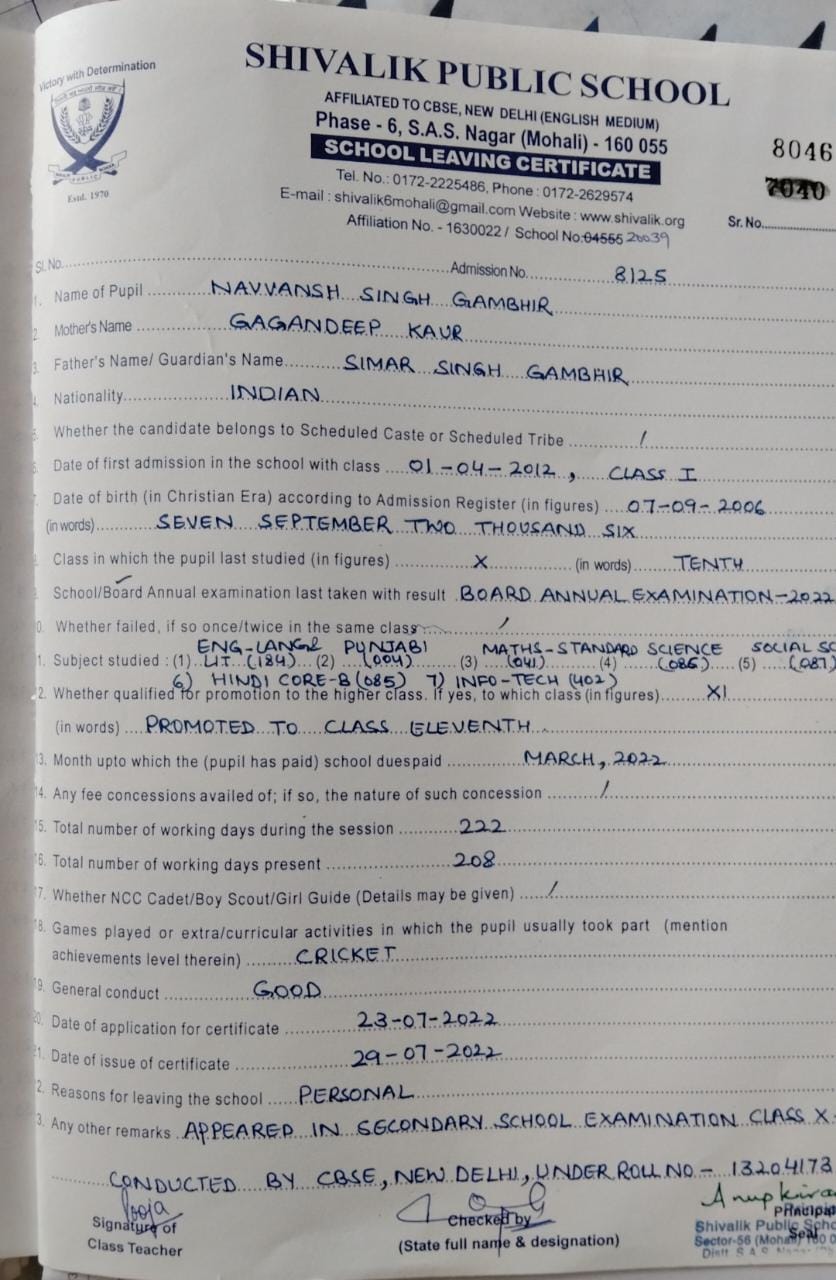 Victory with Determination
SHIVALIK PUBLIC SCHOOL
AFFILIATED TO CBSE, NEW DELHI (ENGLISH MEDIUM)
Phase - 6, S.A.S. Nagar (Mohali) - 160 055
8046
SCHOOL LEAVING CERTIFICATE
7040
Tel. No.: 0172-2225486, Phone : 0172-2629574
PUBLIC
Estd. 1970
E-mail : shivalik6mohali@gmail.com Website : www.shivalik.org
Sr. No.
Affiliation No. - 1630022 / School No:04555 20039
Sl. No. Admission No. 8125
1. Name of Pupil NAVVANSH SINGH GAMBHIR
2. Mother's Name GAGANDEEP KAUR
3. Father's Name/ Guardian's Name SIMAR SINGH GAMBHIR
4. Nationality INDIAN
5. Whether the candidate belongs to Scheduled Caste or Scheduled Tribe /
6. Date of first admission in the school with class 01-04-2012, CLASS I
7. Date of birth (in Christian Era) according to Admission Register (in figures) 07-09-2006
(in words) SEVEN SEPTEMBER TWO THOUSAND SIX
Class in which the pupil last studied (in figures) X (in words) TENTH
School/Board Annual examination last taken with result BOARD ANNUAL EXAMINATION-2022
0. Whether failed, if so once/twice in the same class /
ENG-LANG& PUNJABI MATHS-STANDARD SCIENCE SOCIAL SC
1. Subject studied : (1) LIT (184) (2) (004) (3) (041) (4) (086) (5) (087)
6) HINDI CORE-B (085) 7) INFO-TECH (402)
2. Whether qualified for promotion to the higher class. If yes, to which class (in figures) XI
(in words) PROMOTED TO CLASS ELEVENTH
3. Month upto which the (pupil has paid) school duespaid MARCH, 2022
14. Any fee concessions availed of; if so, the nature of such concession /
15. Total number of working days during the session 222
16. Total number of working days present 208
17. Whether NCC Cadet/Boy Scout/Girl Guide (Details may be given) /
18. Games played or extra/curricular activities in which the pupil usually took part (mention
achievements level therein) CRICKET
19. General conduct GOOD
20. Date of application for certificate 23-07-2022
21. Date of issue of certificate 29-07-2022
2. Reasons for leaving the school PERSONAL
3. Any other remarks APPEARED IN SECONDARY SCHOOL EXAMINATION CLASS X
CONDUCTED BY CBSE, NEW DELHI, UNDER ROLL NO - 13204173
Pooja
Signature of
Class Teacher
Checked by
(State full name & designation)
Anupkira
Principal
Shivalik Public Scho
Seal
Sector-56 (Mohali) 160 0
Distt. S.A.S. Nagar